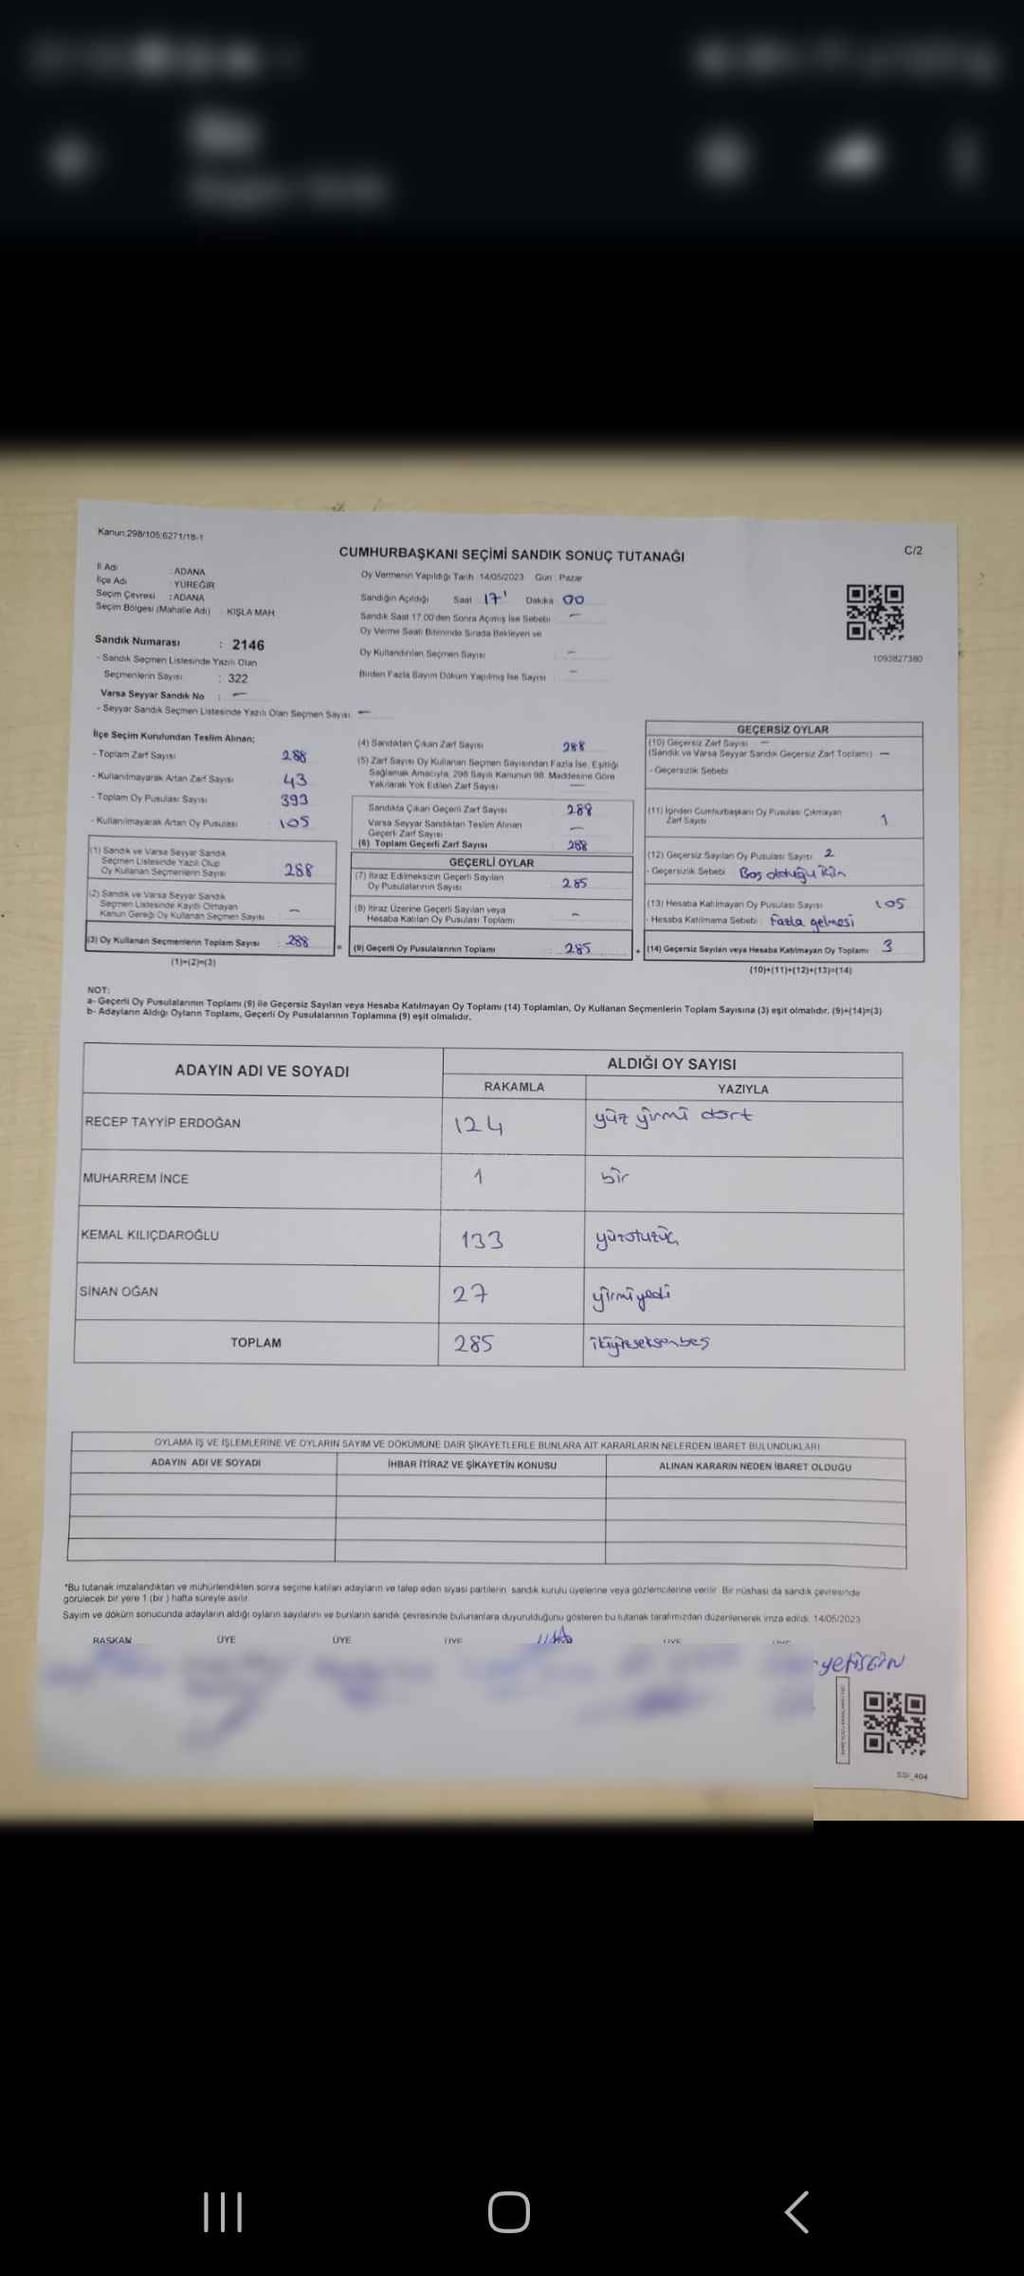 Kanun:298/105;6271/18-1
CUMHURBAŞKANI SEÇİMİ SANDIK SONUÇ TUTANAĞI
C/2
İl Adı : ADANA
İlçe Adı : YÜREĞİR
Seçim Çevresi : ADANA
Seçim Bölgesi (Mahalle Adı) : KIŞLA MAH
Sandık Numarası : 2146
- Sandık Seçmen Listesinde Yazılı Olan
Seçmenlerin Sayısı : 322
Varsa Seyyar Sandık No : —
- Seyyar Sandık Seçmen Listesinde Yazılı Olan Seçmen Sayısı —
Oy Vermenin Yapıldığı Tarih 14/05/2023 Gün : Pazar
Sandığın Açıldığı Saat 17 Dakika 00
Sandık Saat 17.00'den Sonra Açılmış İse Sebebi —
Oy Verme Saati Bitiminde Sırada Bekleyen ve
Oy Kullandırılan Seçmen Sayısı —
Birden Fazla Sayım Döküm Yapılmış İse Sayısı —
1093827380
İlçe Seçim Kurulundan Teslim Alınan;
- Toplam Zarf Sayısı 288
- Kullanılmayarak Artan Zarf Sayısı 43
- Toplam Oy Pusulası Sayısı 393
- Kullanılmayarak Artan Oy Pusulası 105
(1) Sandık ve Varsa Seyyar Sandık
Seçmen Listesinde Yazılı Olup
Oy Kullanan Seçmenlerin Sayısı 288
(2) Sandık ve Varsa Seyyar Sandık
Seçmen Listesinde Kayıtlı Olmayan
Kanun Gereği Oy Kullanan Seçmen Sayısı —
(3) Oy Kullanan Seçmenlerin Toplam Sayısı 288
(1)+(2)=(3)
(4) Sandıktan Çıkan Zarf Sayısı 288
(5) Zarf Sayısı Oy Kullanan Seçmen Sayısından Fazla İse, Eşitliği
Sağlamak Amacıyla, 298 Sayılı Kanunun 98. Maddesine Göre
Yakılarak Yok Edilen Zarf Sayısı —
Sandıkta Çıkan Geçerli Zarf Sayısı 288
Varsa Seyyar Sandıktan Teslim Alınan
Geçerli Zarf Sayısı —
(6) Toplam Geçerli Zarf Sayısı 288
GEÇERLİ OYLAR
(7) İtiraz Edilmeksizin Geçerli Sayılan
Oy Pusulalarının Sayısı 285
(8) İtiraz Üzerine Geçerli Sayılan veya
Hesaba Katılan Oy Pusulası Toplamı —
= (9) Geçerli Oy Pusulalarının Toplamı 285
GEÇERSİZ OYLAR
(10) Geçersiz Zarf Sayısı —
(Sandık ve Varsa Seyyar Sandık Geçersiz Zarf Toplamı) —
- Geçersizlik Sebebi
(11) İçinden Cumhurbaşkanı Oy Pusulası Çıkmayan
Zarf Sayısı 1
(12) Geçersiz Sayılan Oy Pusulası Sayısı 2
- Geçersizlik Sebebi Boş olduğu için
(13) Hesaba Katılmayan Oy Pusulası Sayısı 105
- Hesaba Katılmama Sebebi : Fazla gelmesi
+ (14) Geçersiz Sayılan veya Hesaba Katılmayan Oy Toplamı 3
(10)+(11)+(12)+(13)=(14)
NOT:
a- Geçerli Oy Pusulalarının Toplamı (9) ile Geçersiz Sayılan veya Hesaba Katılmayan Oy Toplamı (14) Toplamları, Oy Kullanan Seçmenlerin Toplam Sayısına (3) eşit olmalıdır. (9)+(14)=(3)
b- Adayların Aldığı Oyların Toplamı, Geçerli Oy Pusulalarının Toplamına (9) eşit olmalıdır.
ADAYIN ADI VE SOYADI ALDIĞI OY SAYISI
RAKAMLA YAZIYLA
RECEP TAYYİP ERDOĞAN 124 yüz yirmi dört
MUHARREM İNCE 1 bir
KEMAL KILIÇDAROĞLU 133 yüzotuzüç
SİNAN OĞAN 27 yirmiyedi
TOPLAM 285 ikiyüzseksenbeş
OYLAMA İŞ VE İŞLEMLERİNE VE OYLARIN SAYIM VE DÖKÜMÜNE DAİR ŞİKAYETLERLE BUNLARA AİT KARARLARIN NELERDEN İBARET BULUNDUKLARI
ADAYIN ADI VE SOYADI İHBAR İTİRAZ VE ŞİKAYETİN KONUSU ALINAN KARARIN NEDEN İBARET OLDUĞU
*Bu tutanak imzalandıktan ve mühürlendikten sonra seçime katılan adayların ve talep eden siyasi partilerin sandık kurulu üyelerine veya gözlemcilerine verilir. Bir nüshası da sandık çevresinde
görülecek bir yere 1 (bir) hafta süreyle asılır.
Sayım ve döküm sonucunda adayların aldığı oyların sayılarını ve bunların sandık çevresinde bulunanlara duyurulduğunu gösteren bu tutanak tarafımızdan düzenlenerek imza edildi. 14/05/2023
BAŞKAN ÜYE ÜYE ÜYE ÜYE
yetişgin